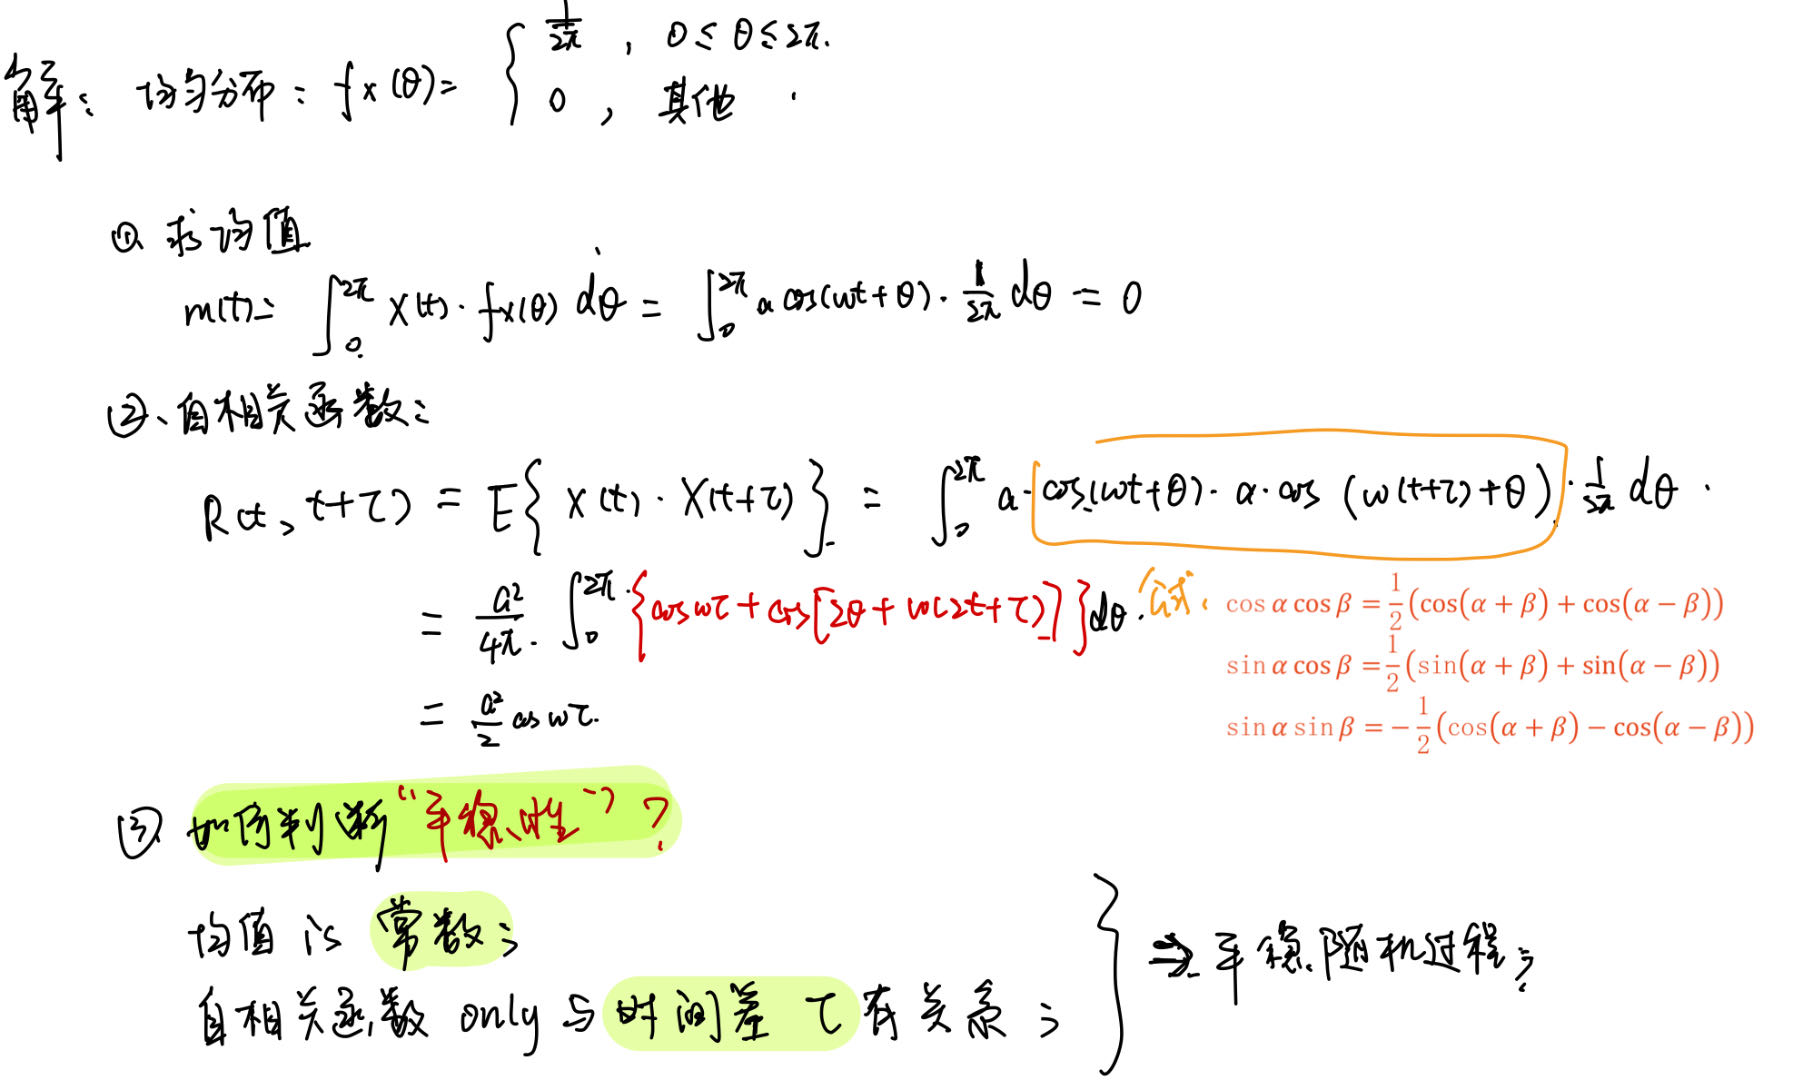 解：均匀分布：fx(θ)= { 1/2π ， 0≤θ≤2π.
0 ， 其他 .
①、求均值
m(t)= ∫₀^2π X(t)·fx(θ) dθ = ∫₀^2π a cos(wt+θ)·1/2π dθ = 0
②、自相关函数：
R(t, t+τ) = E{ X(t)·X(t+τ) } = ∫₀^2π a·cos(wt+θ)·a·cos (w(t+τ)+θ)·1/2π dθ .
= a²/4π · ∫₀^2π {cos wτ + cos[2θ + w(2t+τ)]} dθ.
公式: cos α cos β = 1/2 (cos(α + β) + cos(α − β))
sin α cos β = 1/2 (sin(α + β) + sin(α − β))
= a²/2 cos wτ.
sin α sin β = − 1/2 (cos(α + β) − cos(α − β))
③ 如何判断“平稳性”？
均值 is 常数；
⇒ 平稳随机过程；
自相关函数 only 与时间差 τ 有关系；